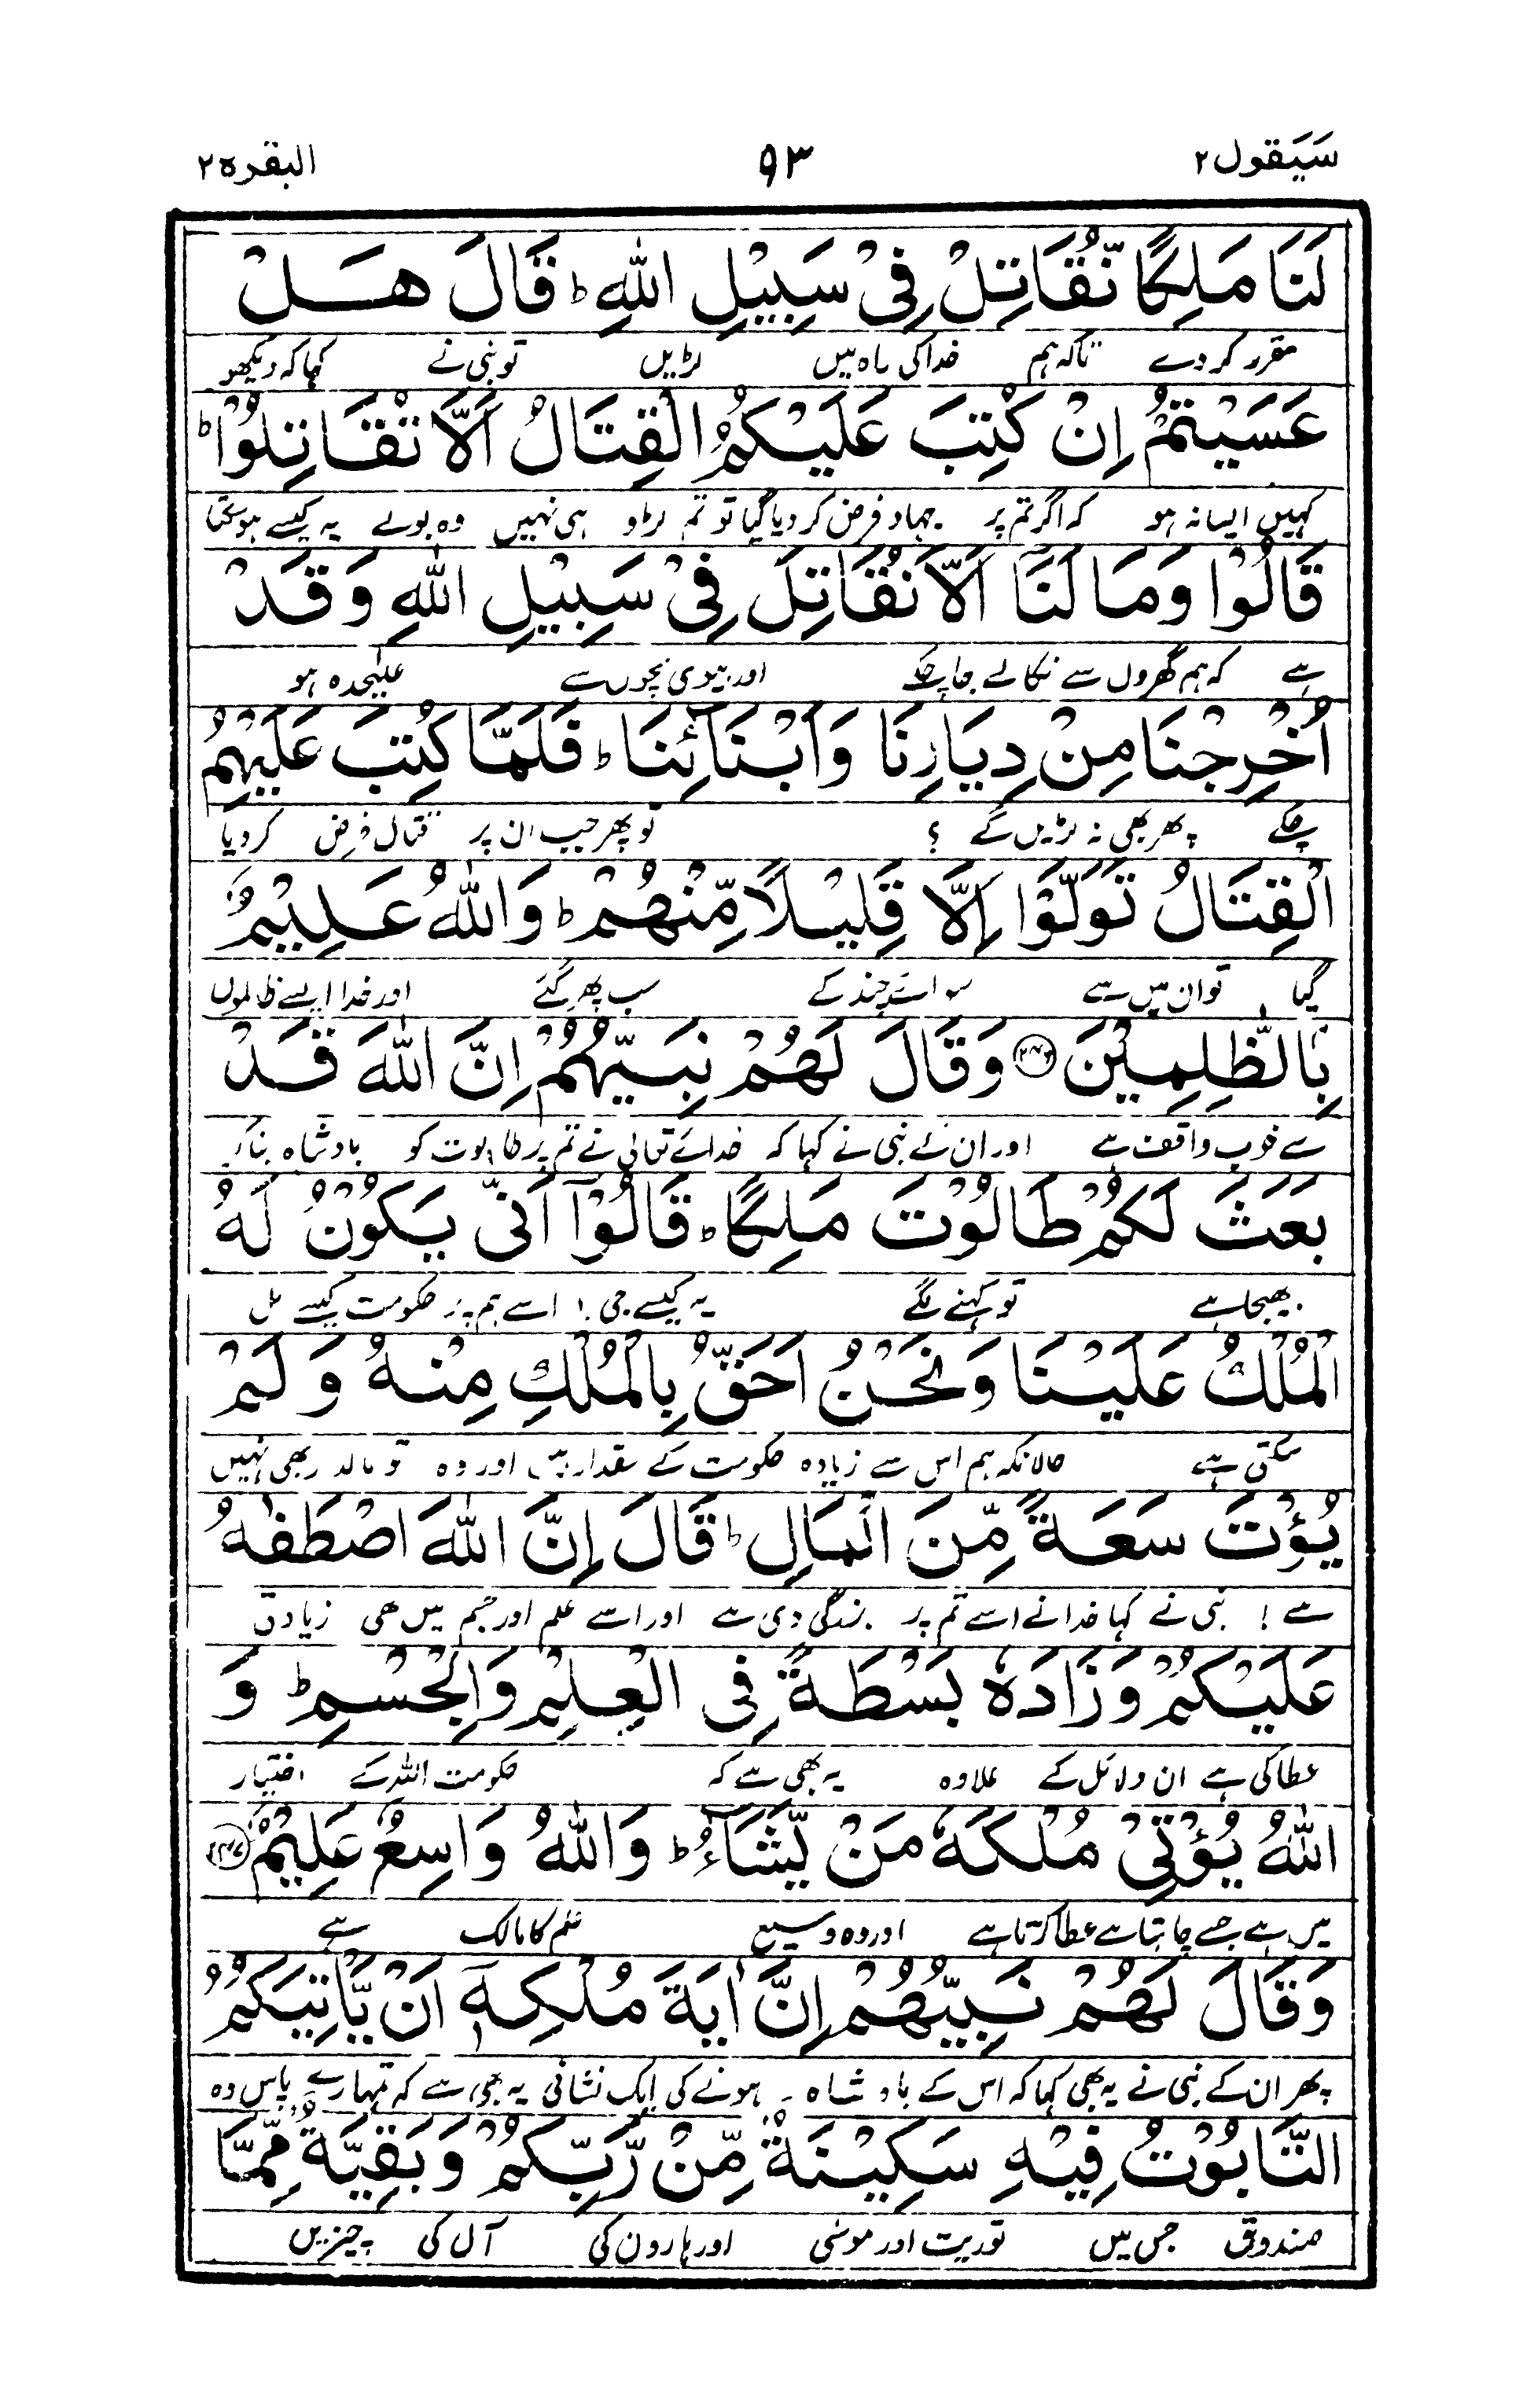 سَيَقول٢ ٩٣ البقره٢
لَنَا مَلِكًا نُّقَاتِلْ فِيْ سَبِيْلِ اللهِ ؕ قَالَ هَـلْ
مقرر کر دے تاکہ ہم خدا کی راہ میں لڑیں تو نبی نے کہا کہ دیکھو
عَسَيْتُمْ اِنْ كُتِبَ عَلَيْكُمُ الْقِتَالُ اَلَّا تُقَاتِلُوْا ؕ
کہیں ایسا نہ ہو کہ اگر تم پر جہاد فرض کر دیا گیا تو تم لڑو ہی نہیں وہ بولے یہ کیسے ہو سکتا
قَالُوْا وَمَا لَنَآ اَلَّا نُقَاتِلَ فِيْ سَبِيْلِ اللّٰهِ وَقَدْ
ہے کہ ہم گھروں سے نکالے جا چکے اور بیوی بچوں سے علیٰحدہ ہو
اُخْرِجْنَا مِنْ دِيَارِنَا وَاَبْنَآئِنَا ؕ فَلَمَّا كُتِبَ عَلَيْهِمُ
چکے پھر بھی نہ لڑیں گے ؟ تو پھر جب ان پر قتال فرض کر دیا
الْقِتَالُ تَوَلَّوْا اِلَّا قَلِيْلًا مِّنْهُمْ ؕ وَاللّٰهُ عَلِيْمٌۢ
گیا تو ان میں سے سوائے چند کے سب پھر گئے اور خدا ایسے ظالموں
بِالظّٰلِمِيْنَ ﴿٢٤٦﴾ وَقَالَ لَهُمْ نَبِيُّهُمْ اِنَّ اللّٰهَ قَدْ
سے خوب واقف ہے اور ان کے نبی نے کہا کہ خدائے تعالیٰ نے تم پر طالوت کو بادشاہ بنا کر
بَعَثَ لَكُمْ طَالُوْتَ مَلِكًا ؕ قَالُوْٓا اَنّٰى يَكُوْنُ لَهُ
بھیجا ہے تو کہنے لگے یہ کیسے جی ! اسے ہم پر حکومت کیسے مل
الْمُلْكُ عَلَيْنَا وَنَحْنُ اَحَقُّ بِالْمُلْكِ مِنْهُ وَلَمْ
سکتی ہے حالانکہ ہم اس سے زیادہ حکومت کے حقدار ہیں اور وہ تو مالدار بھی نہیں
يُؤْتَ سَعَةً مِّنَ الْمَالِ ؕ قَالَ اِنَّ اللّٰهَ اصْطَفٰىهُ
ہے ! نبی نے کہا خدا نے اسے تم پر بزرگی دی ہے اور اسے علم اور جسم میں بھی زیادتی
عَلَيْكُمْ وَزَادَهٗ بَسْطَةً فِى الْعِلْمِ وَالْجِسْمِ ؕ وَ
عطا کی ہے ان دلائل کے علاوہ یہ بھی ہے کہ حکومت اللہ کے اختیار
اللّٰهُ يُؤْتِيْ مُلْكَهٗ مَنْ يَّشَآءُ ؕ وَاللّٰهُ وَاسِعٌ عَلِيْمٌ ﴿٢٤٧﴾
میں ہے جسے چاہتا ہے عطا کرتا ہے اور وہ وسیع علم کا مالک ہے
وَقَالَ لَهُمْ نَبِيُّهُمْ اِنَّ اٰيَةَ مُلْكِهٖٓ اَنْ يَّاْتِيَكُمُ
پھر ان کے نبی نے یہ بھی کہا کہ اس کے بادشاہ ہونے کی ایک نشانی یہ بھی ہے کہ تمہارے پاس وہ
التَّابُوْتُ فِيْهِ سَكِيْنَةٌ مِّنْ رَّبِّكُمْ وَبَقِيَّةٌ مِّمَّا
صندوق جس میں توریت اور موسیٰ اور ہارون کی آل کی چیزیں